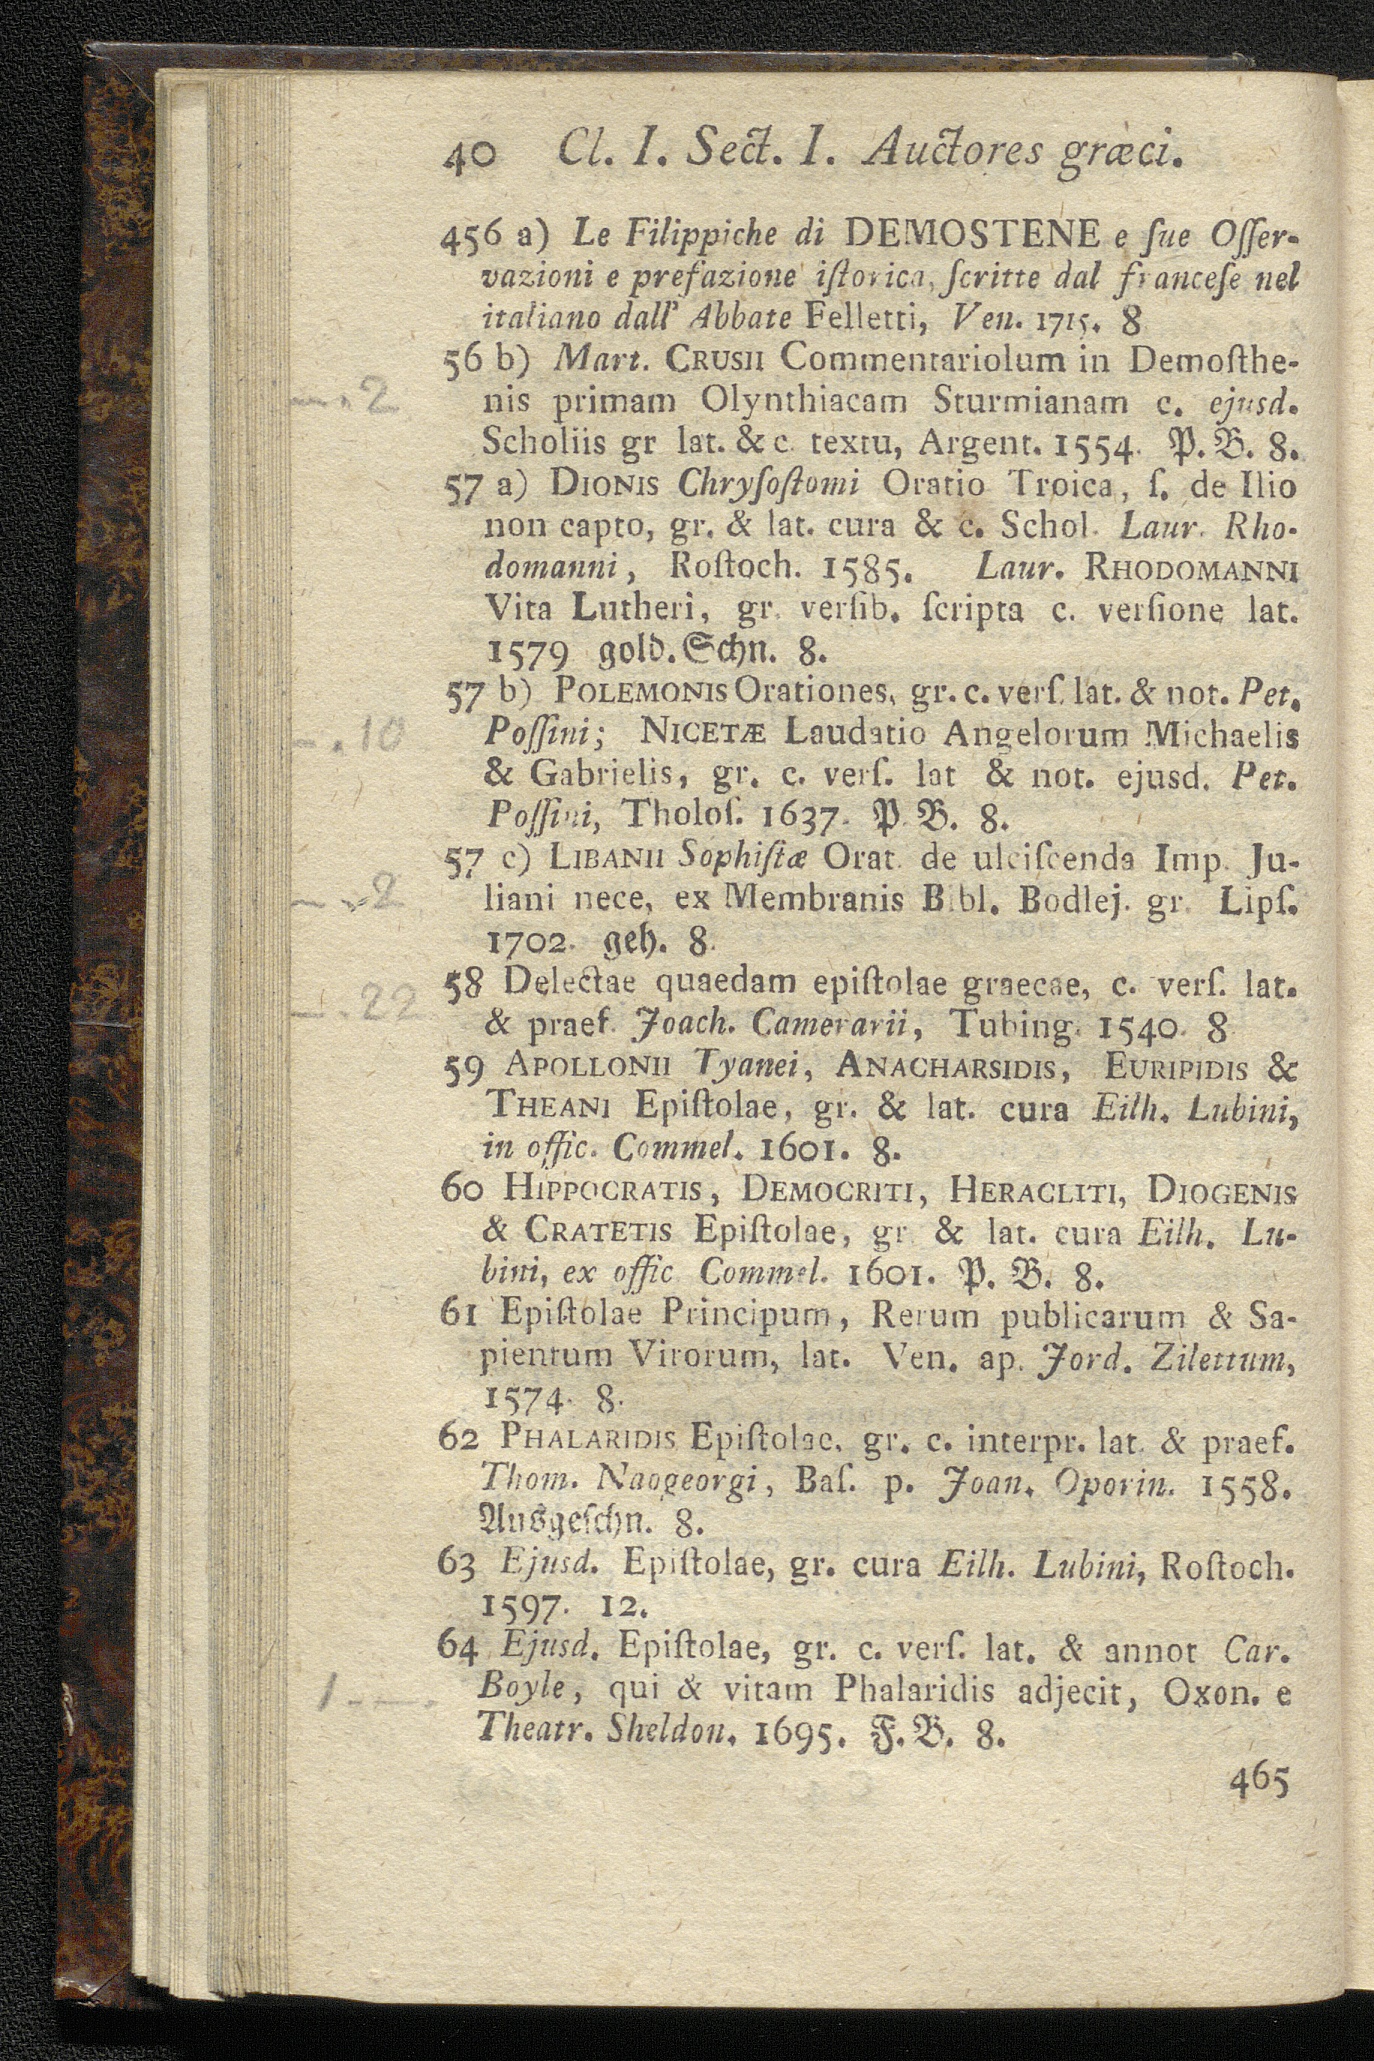 40 Cl. I. Sect. I. Auctores græci.
456 a) Le Filippiche di DEMOSTENE e ſue Oſſer-
vazioni e prefazione iſtorica, ſcritte dal franceſe nel
italiano dall' Abbate Felletti, Ven. 1715. 8
56 b) Mart. CRUSII Commentariolum in Demoſthe-
— . 2
nis primam Olynthiacam Sturmianam c. ejusd.
Scholiis gr lat. & c. textu, Argent. 1554. P. B. 8.
57 a) DIONIS Chryſoſtomi Oratio Troica, ſ. de Ilio
non capto, gr. & lat. cura & c. Schol. Laur. Rho-
domanni, Roſtoch. 1585. Laur. RHODOMANNI
Vita Lutheri, gr. verſib. ſcripta c. verſione lat.
1579 gold. Schn. 8.
57 b) POLEMONIS Orationes, gr. c. verſ. lat. & not. Pet.
— . 10
Poſſini; NICETÆ Laudatio Angelorum Michaelis
& Gabrielis, gr. c. verſ. lat & not. ejusd. Pet.
Poſſini, Tholoſ. 1637. P. B. 8.
57 c) LIBANII Sophiſtæ Orat. de ulciſcenda Imp. Ju-
— . - 2
liani nece, ex Membranis Bibl. Bodlej. gr. Lipſ.
1702. geh. 8.
— . 22
58 Delectae quaedam epiſtolae graecae, c. verſ. lat.
& praef. Joach. Camerarii, Tubing. 1540. 8
59 APOLLONII Tyanei, ANACHARSIDIS, EURIPIDIS &
THEANI Epiſtolae, gr. & lat. cura Eilh. Lubini,
in offic. Commel. 1601. 8.
60 HIPPOCRATIS, DEMOCRITI, HERACLITI, DIOGENIS
& CRATETIS Epiſtolae, gr. & lat. cura Eilh. Lu-
bini, ex offic Commel. 1601. P. B. 8.
61 Epiſtolae Principum, Rerum publicarum & Sa-
pientum Virorum, lat. Ven. ap. Jord. Zilettum,
1574. 8.
62 PHALARIDIS Epiſtolae, gr. c. interpr. lat. & praef.
Thom. Naogeorgi, Baſ. p. Joan. Oporin. 1558.
Ausgeſchn. 8.
63 Ejusd. Epiſtolae, gr. cura Eilh. Lubini, Roſtoch.
1597. 12.
64 Ejusd. Epiſtolae, gr. c. verſ. lat. & annot Car.
1 - — .
Boyle, qui & vitam Phalaridis adjecit, Oxon. e
Theatr. Sheldon. 1695. F. B. 8.
465